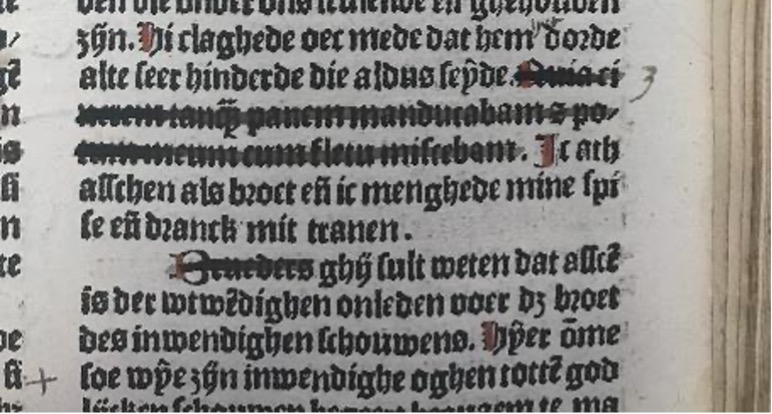 zÿn. Hi claghede oec mede dat hem dorde
alte seer hinderde die aldus seÿde. Quia ci
nerem tanq̃ panem manducabam ⁊ po⸗
tum meum cum fletu miscebam. Ic ath
asschen als broet eñ ic menghede mine spi
se eñ dranck mit tranen.
Brueders ghÿ sult weten dat asscē
is der wtwēdighen onleden voer dʒ broet
des inwendighen schouwens. Hÿer ōme
soe wÿe zÿn inwendighe oghen tottē god